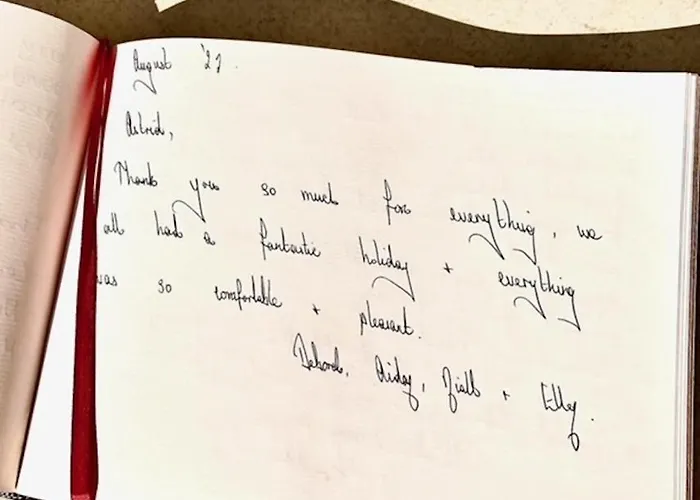 August '21.
Astrid,
Thank you so much for everything, we
all had a fantastic holiday + everything
was so comfortable + pleasant.
Deborah, +